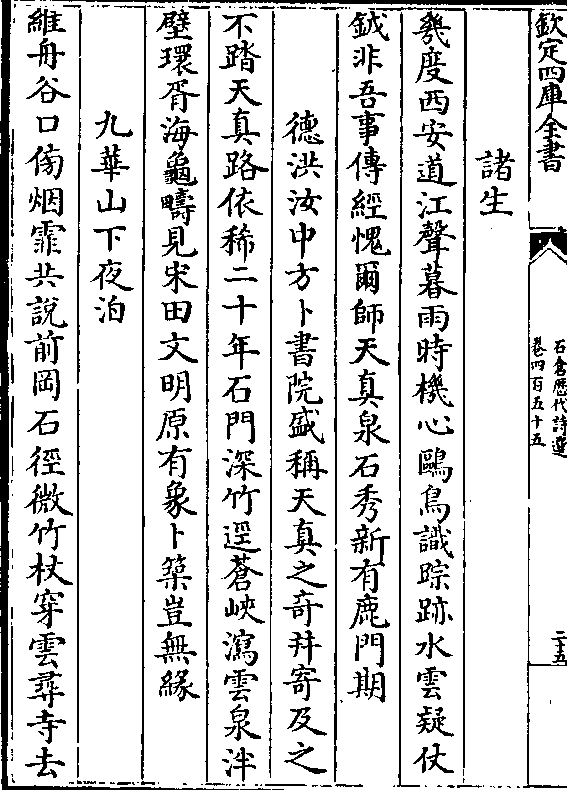 欽定四庫全書
石倉歴代詩選
卷四百五十五
二十五
諸生
幾度西安道江聲暮雨時機心鷗鳥識踪跡水雲疑仗
鉞非吾事傳經愧爾師天真泉石秀新有鹿門期
德洪汝中方卜書院盛稱天真之奇并寄及之
不踏天真路依稀二十年石門深竹逕蒼峽瀉雲泉泮
壁環胥海龜疇見宋田文明原有象卜築豈無緣
九華山下夜泊
維舟谷口傍烟霏共説前岡石徑微竹杖穿雲尋寺去